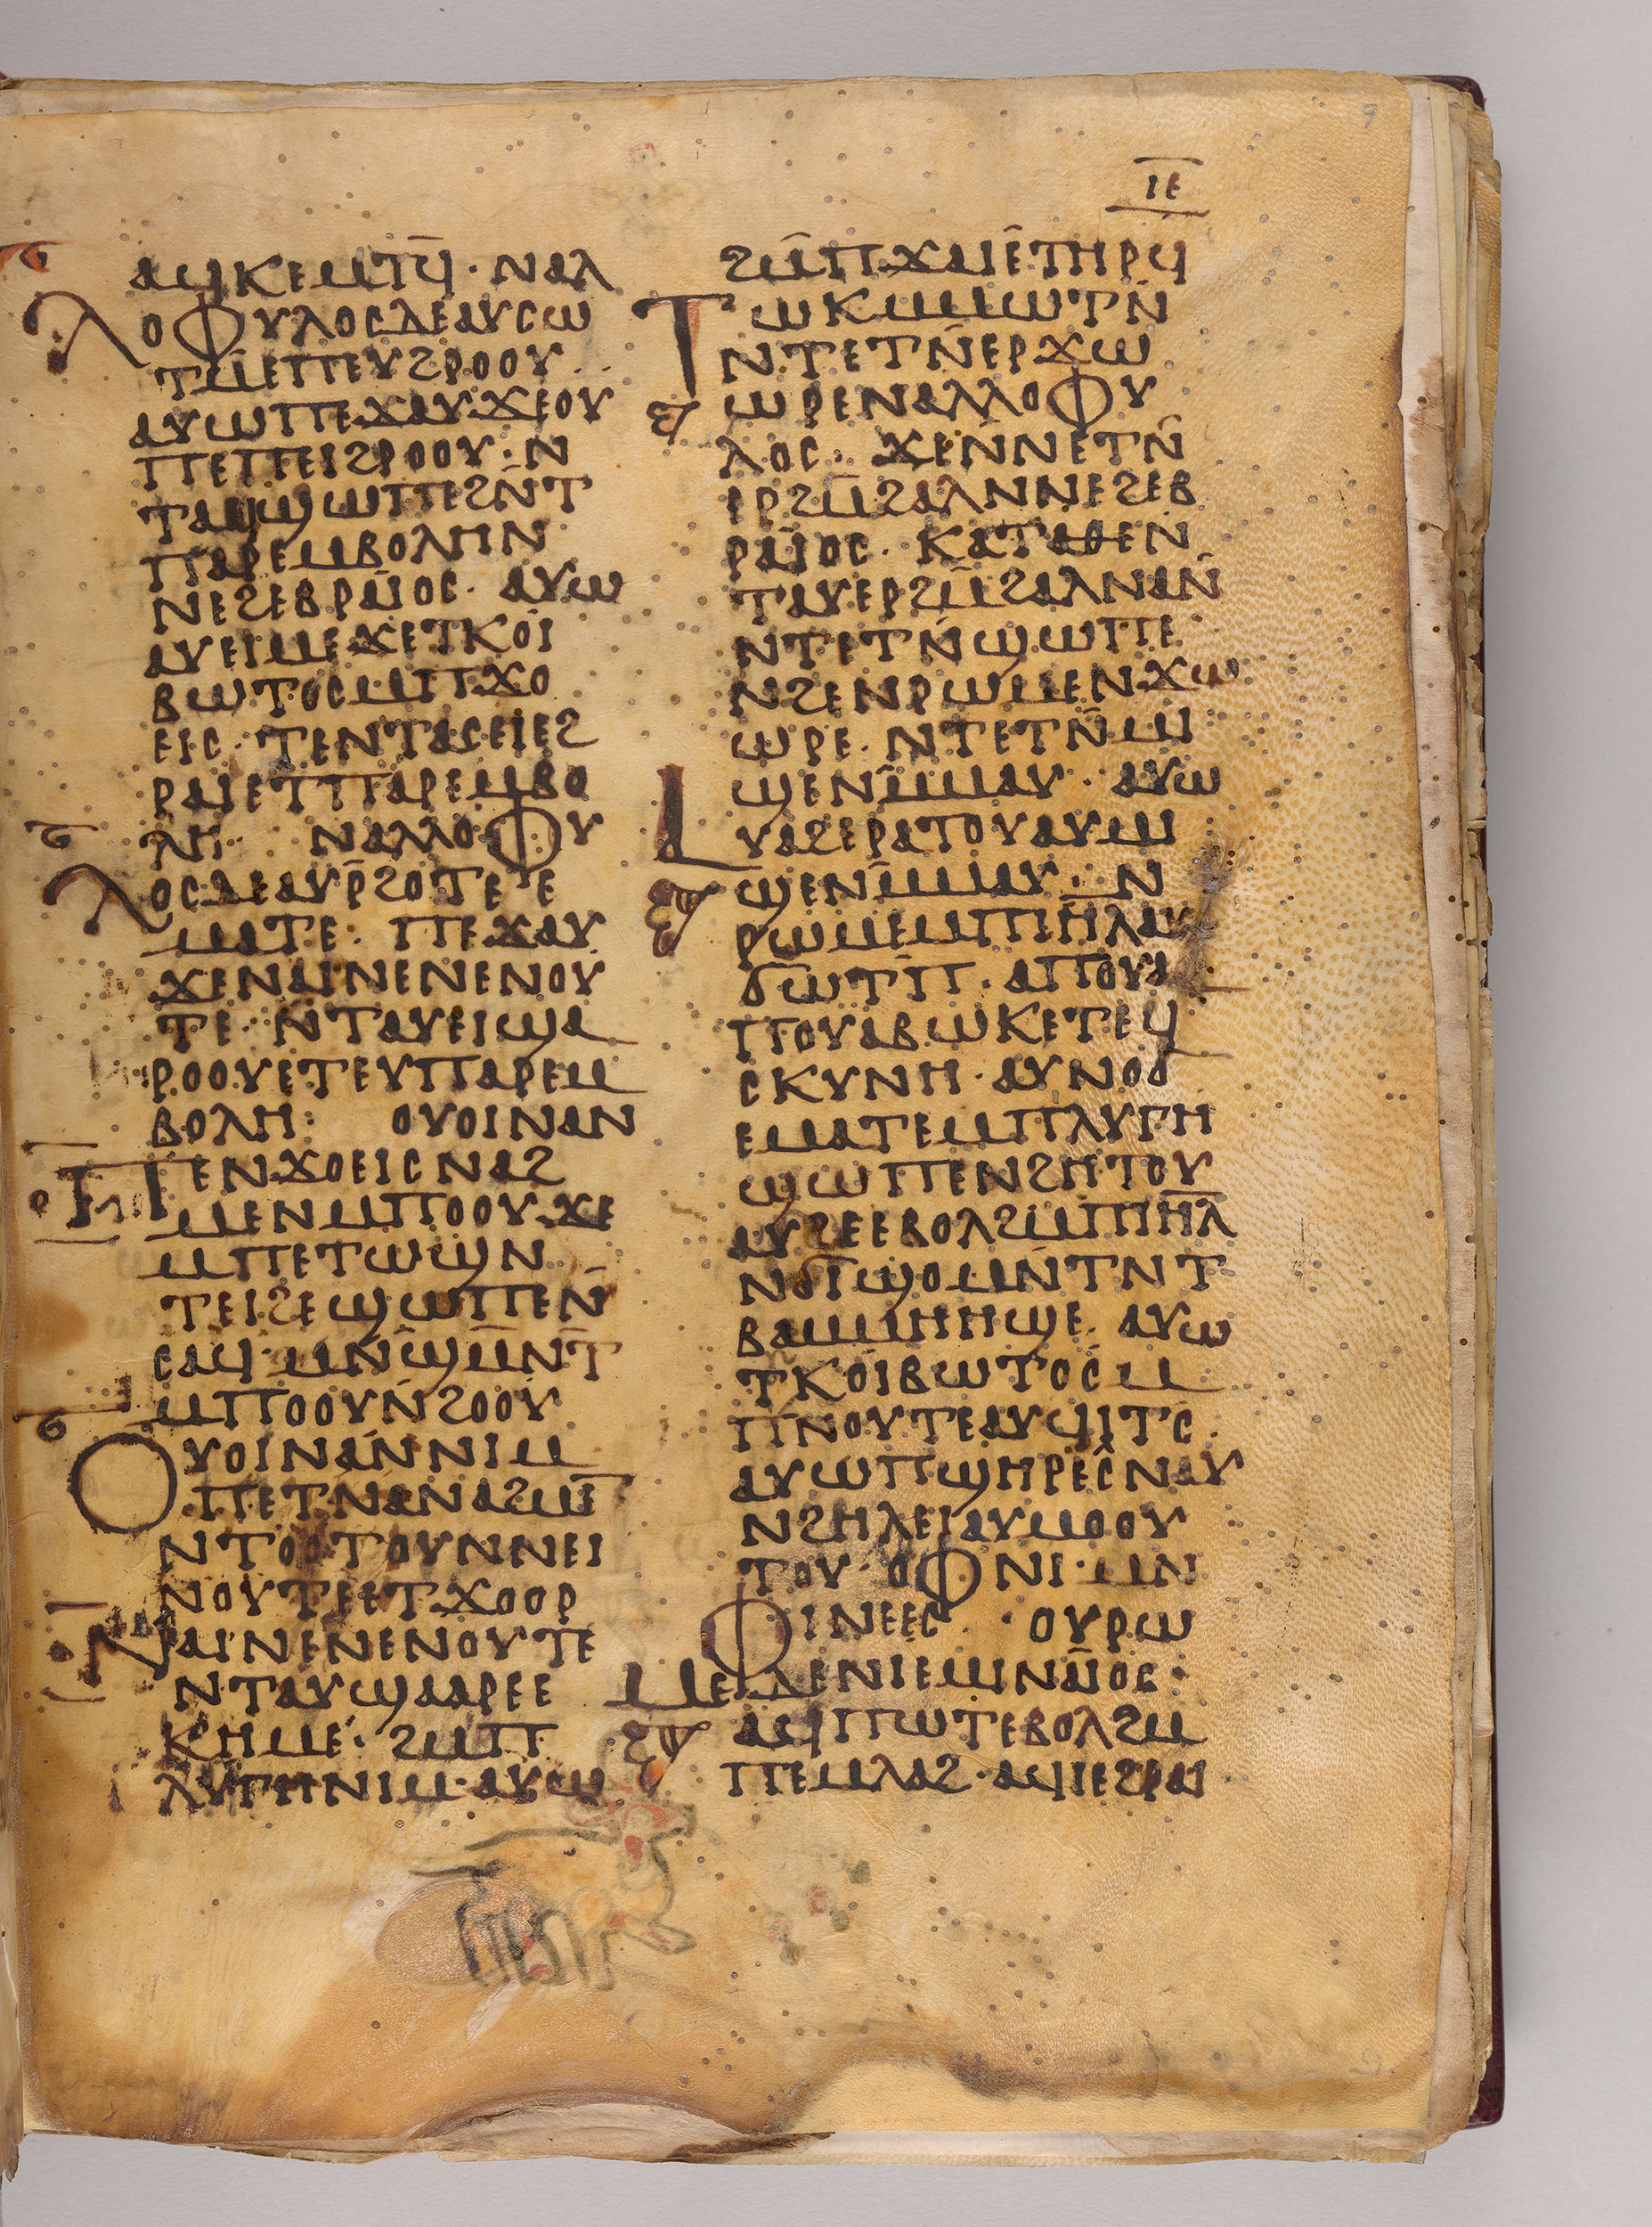 ⲓⲉ
ⲁϥⲕⲉⲙⲧϥ̄· ⲛⲁⲗ
ⲗⲟⲫⲩⲗⲟⲥ ⲇⲉ ⲁⲩⲥⲱ
ⲧⲙ̄ⲉⲡⲉⲩϩⲣⲟⲟⲩ·
ⲁⲩⲱ ⲡⲉϫⲁⲩ ϫⲉⲟⲩ
ⲡⲉ ⲡⲉⲓϩⲣⲟⲟⲩ· ⲛ
ⲧⲁϥϣⲱⲡⲉ ϩⲛ̄ⲧ
ⲡⲁⲣⲉⲙⲃⲟⲗⲏ ⲛ
ⲛⲉϩⲉⲃⲣⲁⲓⲟⲥ· ⲁⲩⲱ
ⲁⲩⲉⲓⲙⲉ ϫⲉⲧⲕⲟⲓ
ⲃⲱⲧⲟⲥ ⲙⲡϫⲟ
ⲉⲓⲥ· ⲧⲉⲛⲧⲁⲥⲉⲓ ⲉϩ
ⲣⲁⲓ ⲉⲧⲡⲁⲣⲉⲙⲃⲟ
ⲗⲏ· ⲛⲁⲗⲗⲟⲫⲩ
ⲗⲟⲥ ⲇⲉ ⲁⲩⲣ̄ϩⲟⲧⲉ ⲉ
ⲙⲁⲧⲉ· ⲡⲉϫⲁⲩ
ϫⲉⲛⲁⲓ ⲛⲉ ⲛⲉⲛⲟⲩ
ⲧⲉ· ⲛⲧⲁⲩⲉⲓ ϣⲁ
ⲣⲟⲟⲩ ⲉⲧⲉⲩⲡⲁⲣⲉⲙ
ⲃⲟⲗⲏ: ⲟⲩⲟⲓ ⲛⲁⲛ
ⲡⲉⲛϫⲟⲉⲓⲥ ⲛⲁϩ
ⲙⲉⲛ ⲙⲡⲟⲟⲩ· ϫⲉ
ⲙⲡⲉⲧⲱϣ ⲛ
ⲧⲉⲓϩⲉ ϣⲱⲡⲉ ⲛ̄
ⲥⲁϥ· ⲙⲛ̄ϣⲙ̄ⲛ̄ⲧ
ⲙⲡⲟⲟⲩ ⲛ̄ϩⲟⲟⲩ
ⲟⲩⲟⲓ ⲛⲁⲛ ⲛⲓⲙ
ⲡⲉⲧⲛⲁⲛⲁϩⲙⲛ̄
ⲛⲧⲟⲟⲧⲟⲩ ⲛⲛⲉⲓ
ⲛⲟⲩⲧⲉ ⲉⲧϫⲟⲟⲣ
ⲛⲁⲓ ⲛⲉ ⲛⲉⲛⲟⲩⲧⲉ
ⲛⲧⲁⲩϣⲁⲁⲣⲉ ⲉ
ⲕⲏⲙⲉ· ϩⲙⲡ
ⲗⲩⲅⲏ ⲛⲓⲙ· ⲁⲩⲱ
ϩⲙ̄ⲡϫⲁⲓⲉ ⲧⲏⲣϥ
ⲧⲱⲕ ⲙⲙⲱⲧⲛ̄
ⲛⲧⲉⲧⲛ̄ⲉⲣϫⲱ
ⲱⲣⲉ ⲛⲁⲗⲗⲟⲫⲩ
ⲗⲟⲥ· ϫⲉⲛ̄ⲛⲉⲧⲛ̄
ⲉⲣϩⲙ̄ϩⲁⲗ ⲛⲛⲉϩⲉⲃ
ⲣⲁⲓⲟⲥ· ⲕⲁⲧⲁⲑⲉ ⲛ
ⲧⲁⲩⲉⲣϩⲙ̄ϩⲁⲗ ⲛⲁⲛ̄
ⲛⲧⲉⲧⲛ̄ϣⲱⲡⲉ
ⲛϩⲉⲛⲣⲱⲙⲉ ⲛϫⲱ
ⲱⲣⲉ· ⲛⲧⲉⲧⲛ̄ⲙⲓ
ϣⲉ ⲛⲙ̄ⲙⲁⲩ· ⲁⲩⲱ
ⲁⲩⲁϩⲉⲣⲁⲧⲟⲩ ⲁⲩⲙⲓ
ϣⲉ ⲛⲙ̄ⲙⲁⲩ· ⲛ
ⲣⲱⲙⲉ ⲙⲡⲓⲏ̄ⲗ ⲁⲩ
ϭⲱⲧⲡ· ⲁⲡⲟⲩⲁ
ⲡⲟⲩⲁ ⲃⲱⲕ ⲉⲧⲉϥ
ⲥⲕⲩⲛⲏ· ⲁⲩⲛⲟϭ
ⲉⲙⲁⲧⲉ ⲙⲡⲗⲩⲅⲏ
ϣⲱⲡⲉ ⲛϩⲏⲧⲟⲩ
ⲁⲩϩⲉ ⲉⲃⲟⲗ ϩⲙⲡⲓⲏ̄ⲗ̄
ⲛϭⲓϣⲟⲙⲛ̄ⲧ ⲛⲧ
ⲃⲁ ⲙⲙⲏⲏϣⲉ· ⲁⲩⲱ
ⲧⲕⲟⲓⲃⲱⲧⲟⲥ ⲙ
ⲡⲛⲟⲩⲧⲉ ⲁⲩϥⲓⲧⲥ·
ⲁⲩⲱ ⲡϣⲏⲣⲉ ⲥⲛⲁⲩ
ⲛϩⲏⲗⲉⲓ ⲁⲩⲙⲟⲟⲩ
ⲧⲟⲩ· ⲟⲫⲛⲓ· ⲙⲛ
ⲫⲓⲛⲉⲉⲥ· ⲟⲩⲣⲱ
ⲙⲉ ⲇⲉ ⲛⲓⲉⲙⲓⲛⲁⲓⲟⲥ·
ⲁϥⲡⲱⲧ ⲉⲃⲟⲗ ϩⲙ
ⲡⲉⲙⲗⲁϩ· ⲁϥⲓ ⲉϩⲣⲁⲓ